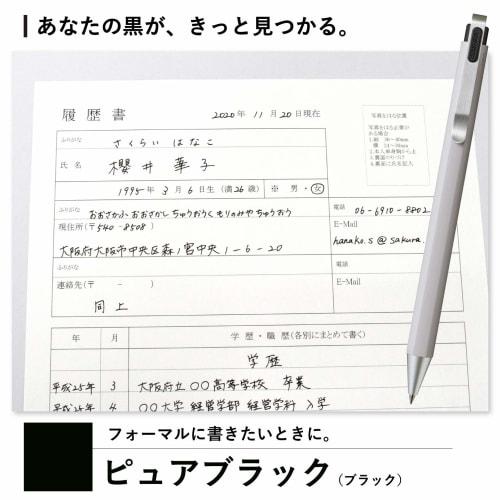 あなたの黒が、きっと見つかる。
履歴書
2020年 11月20日現在
写真をはる位置
ふりがな さくらい はなこ
氏名 櫻井 華子
1995年 3月 6日生 (満26歳) ※ 男・女
ふりがな おおさかふ おおさかし ちゅうおうく もりのみや ちゅうおう
現住所 (〒540-8508)
大阪府大阪市中央区森ノ宮中央1-6-20
電話 06-6910-8802
E-Mail
hanako.s@sakura.
ふりがな
連絡先 (〒 - )
同上
電話
E-Mail
年 月 学歴・職歴 (各別にまとめて書く)
学歴
平成25年 3 大阪府立〇〇高等学校 卒業
平成25年 4 〇〇大学 経営学部 経営学科 入学
フォーマルに書きたいときに。
ピュアブラック(ブラック)